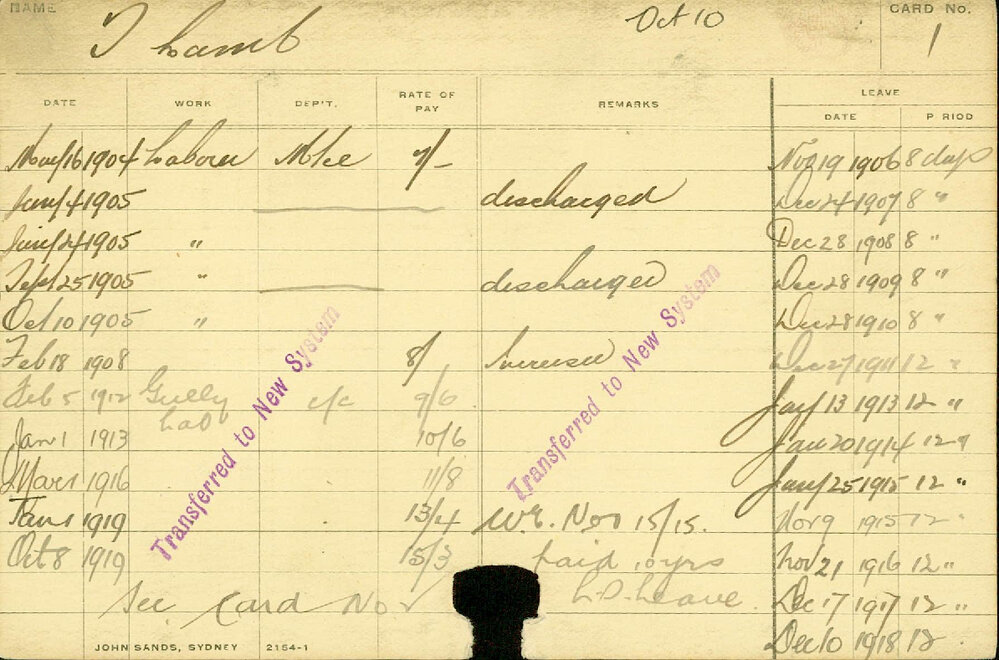 NAME T Lamb Oct 10 CARD No. 1
DATE WORK DEP'T. RATE OF PAY REMARKS LEAVE
DATE P RIOD
Nov 16 1904 Laborer Mke 7/- Nov 19 1906 8 days
Jany 4 1905 discharged Dec 24 1907 8 "
Jany 24 1905 " Dec 28 1908 8 "
Sept 25 1905 " discharged Dec 28 1909 8 "
Oct 10 1905 " Dec 28 1910 8 "
Feb 18 1908 8/ Increased Dec 27 1911 12 "
Feb 5 1912 Gully Lab c/c 9/6 Jany 13 1913 12 "
Jan 1 1913 10/6 Jan 20 1914 12 "
Mar 1 1916 11/8 Jany 25 1915 12 "
Jan 1 1919 13/4 W.E. Nov 15/15. Nov 9 1915 12 "
Oct 8 1919 15/3 paid 10 yrs Nov 21 1916 12 "
See Card No 2 L.S. Leave. Dec 17 1917 12 "
Dec 10 1918 12
Transferred to New System
Transferred to New System
JOHN SANDS, SYDNEY 2154-1